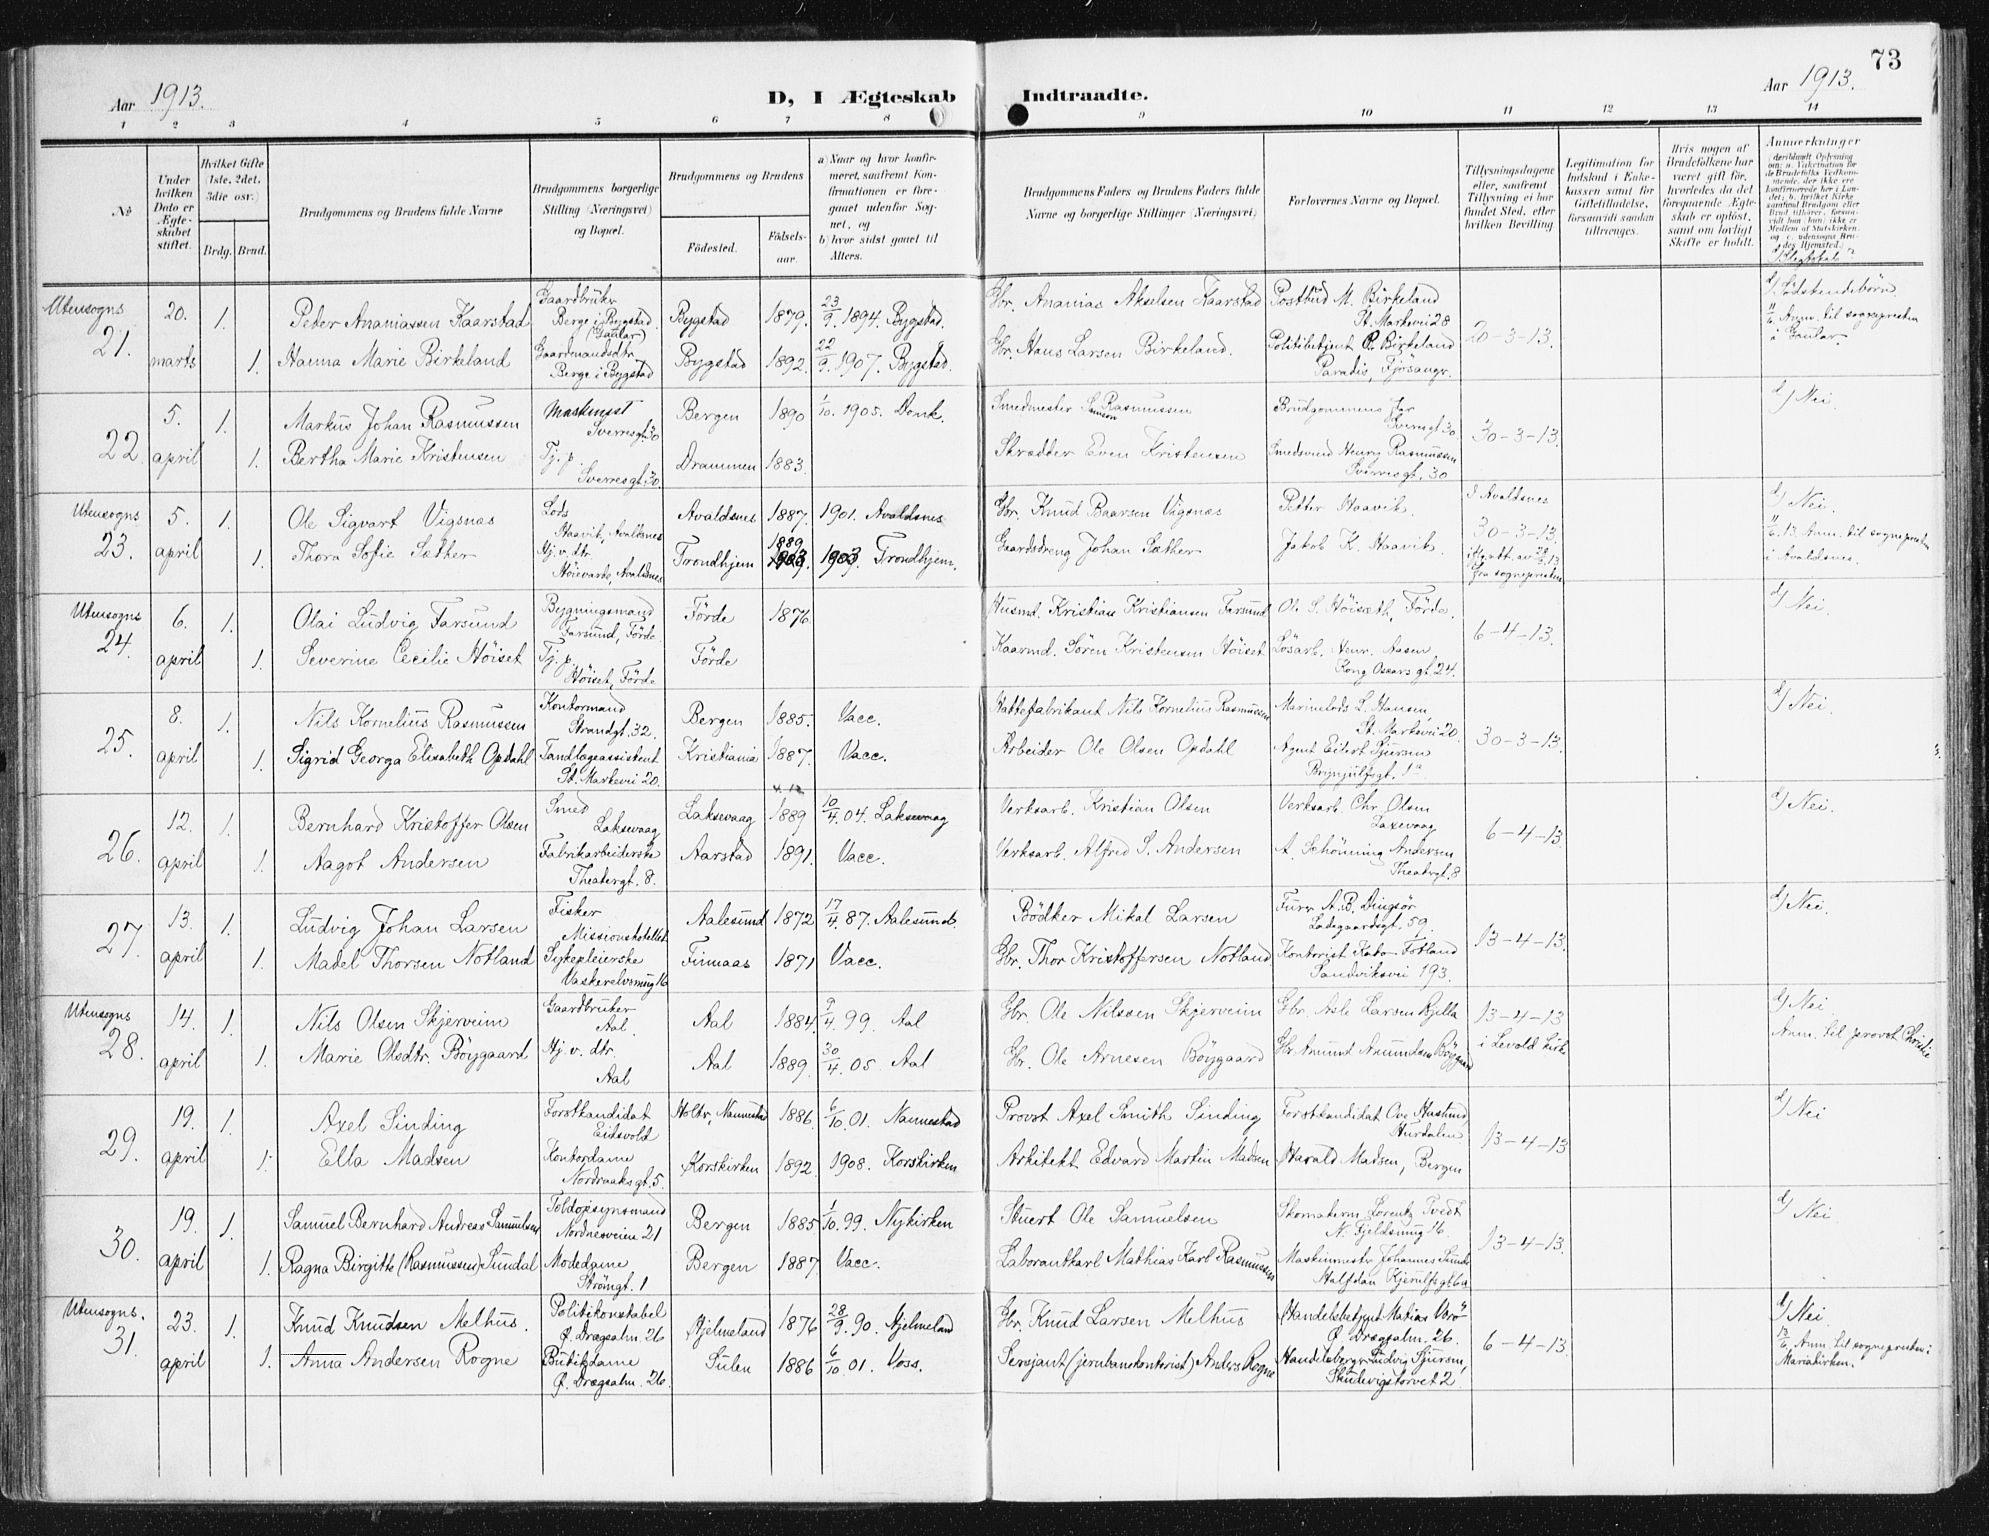 73
Aar 1913.
D, I Ægteskab
Indtraadte.
Aar 1913.
1 2 3 4 5 6 7 8 9 10 11 12 13 14
No
Under hvilken Dato er Ægteskabet stiftet.
Hvilket Gifte (1ste, 2det, 3die osv.)
Brdg. Brud.
Brudgommens og Brudens fulde Navne
Brudgommens borgerlige Stilling (Næringsvei) og Bopæl.
Brudgommens og Brudens
Födested.
Födselsaar.
a) Naar og hvor konfirmeret, saafremt Konfirmationen er foregaaet udenfor Sognet, og
b) hvor sidst gaaet til Alters.
Brudgommens Faders og Brudens Faders fulde Navne og borgerlige Stillinger (Næringsvei)
Forlovernes Navne og Bopæl.
Tillysningsdagene eller, saafremt Tillysning ei har fundet Sted, efter hvilken Bevilling
Legitimation for Indskud i Enkekassen samt for Giftetilladelse, forsaavidt saadan tiltrænges.
Hvis nogen af Brudefolkene har været gift för, hvorledes da det foregaaende Ægteskab er oplöst, samt om lovligt Skifte er holdt.
Anmerkninger
Utensogns 21. 20. marts
1. Peter Ananiassen Kaarstad Gaardbruker Berge i Bygstad (Gaular) Bygstad 1879. 23/9. 1894. Bygstad. Gbr. Ananias Akselsen Kaarstad Postbud M. Birkeland St. Markevei 28 20-3-13.
1. Hanna Marie Birkeland Gaardmandsdtr Berge i Bygstad Bygstad 1892. 22/9. 1907. Bygstad. Gbr. Hans Larsen Birkeland. Politibetjent P. Birkeland Paradis, Fjösanger.
d/ Södskendebörn. Anm. til sognepresten i Gaular.
22. 5. april
1. Markus Johan Rasmussen Maskinist Sverresgt. 30 Bergen 1890 1/10. 1905. Domk. Smedmester Samson Rasmussen Brudgommens far Sverresgt 30. 30-3-13. d/ Nei.
1. Bertha Marie Kristensen Tj. p. Sverresgt. 30. Drammen 1883. Skrædder Even Kristensen Smedsvend Henry Rasmussen Sverresgt. 30
Utensogns 23. 5. april
1. Ole Sigvart Vigsnæs Lods Haavik, Avaldsnes Avaldsnes 1887. 1901. Avaldsnes Gbr. Knud Baarsen Vigsnæs Petter Haavik. I Avaldsnes 30-3-13. d/ Nei.
1. Thora Sofie Sæther Hj. v. dtr. Höievarde, Avaldsnes Trondhjem 1889. 1903 Trondhjem. Gaardsdreng Johan Sæther Jakob K. Haavik. ifg. att. av 28/3 13 fra sognepresten
Anm. til sognepresten i Avaldsnes.
Utensogns 24. 6. april
1. Olai Ludvig Farsund Bygningsmand Farsund, Förde Förde 1876. Husmd. Kristian Kristiansen Farsund Ole S. Höisæth, Förde. 6-4-13. d/ Nei.
1. Severine Cecilie Höiset Tj. p. Höiset, Förde Förde Kaarmd. Sören Kristensen Höiset Lösarb. Henr. Aasen Kong Oscars gt. 24.
25. 8. april
1. Nils Kornelius Rasmussen Kontormand Strandgt. 32. Bergen 1885. Vacc. Hattefabrikant Nils Kornelius Rasmussen Marinelods L. Hansen St. Markevei 20. 30-3-13. d/ Nei.
1. Sigrid Georga Elisabeth Opdahl Tandlægeassistent St. Markevei 20. Kristiania 1887. Vacc. Arbeider Ole Olsen Opdahl Agent Eilert Sjursen Brynjulfsgt. 1a
26. 12. april
1. Bernhard Kristoffer Olsen Smed Laksevaag Laksevaag 1889 10/4. 04. Laksevaag Verksarb. Kristian Olsen Verksarb. Chr. Olsen Laxevaag 6-4-13. d/ Nei.
1. Aagot Andersen Fabrikarbeiderske Theatergt. 8. Aarstad 1891. Vacc. Verksarb. Alfred S. Andersen A. Schönning Andersen Theatergt. 8
27. 13. april
1. Ludvig Johan Larsen Fisker Missionshotellet Aalesund 1872 17/4. 87. Aalesund. Bödker Mikal Larsen Furer A. B. Dingsör Ladegaardsgt. 59. 13-4-13. d/ Nei.
1. Madel Thorsen Notland Sykepleierske Vaskerelvsmug 16 Finnaas 1871 Vacc. Gbr. Thor Kristoffersen Notland Kontorist Kato Totland Sandviksvei 193.
Utensogns 28. 14. april
1. Nils Olsen Skjerveim Gaardbruker Aal. Aal 1884. 9/4. 99. Aal Gbr. Ole Nilssen Skjerveim Gbr. Asle Larsen Rjella 13-4-13 d/ Nei
1. Marie Olsdtr. Böygaard Hj. v. dtr. Aal Aal 1889. 30/4. 05. Aal Gbr. Ole Arnesen Böygaard Gbr. Amund Amundsen Böygaard i Levold kirke
Anm. til provst Christie
29. 19. april
1. Axel Sinding Forstkandidat Eidsvold Holter, Nannestad 1886. 6/10. 01. Nannestad Provst Axel Smith Sinding Forstkandidat Ove Haslund, Hurdalen. 13-4-13 d/ Nei
1. Ella Madsen Kontordame Nordraaksgt. 5. Korskirken 1892. 1908. Korskirken Arkitekt Edvard Martin Madsen Harald Madsen, Bergen
30. 19. april
1. Samuel Bernhard Andreas Samuelsen Toldopsynsmand Nordnesveien 21 Bergen 1885. 1/10. 99. Nykirken Stuert Ole Samuelsen Skomakerm. Lorentz Tvedt N. Fjeldsmug 16. 13-4-13. d/ Nei.
1. Ragna Birgitte (Rasmussen) Sundal Modedame Strömgt. 1 Bergen 1887. Vacc. Laborantkarl Mathias Karl Rasmussen Maskinmester Johannes Sundal Halfdan Kjerulfsgt. 6a
Utensogns. 31. 23. april
1. Knud Knudsen Melhus. Politikonstabel Ö. Drægealm. 26 Hjelmeland 1876 28/9. 90. Hjelmeland Gbr. Knud Larsen Melhus Handelsbetjent Matias Vorö Ö. Drægsalm. 26. 6-4-13. d/ Nei.
1. Anna Andersen Rogne Butikdame Ö. Drægsalm. 26. Sulen 1886 6/10. 01. Voss. Sersjant (jernbanekontorist) Anders Rogne Handelsborger Ludvig Sjursen, Skutevigstorvet 2.
Anm. til sognepresten i Mariakirken.